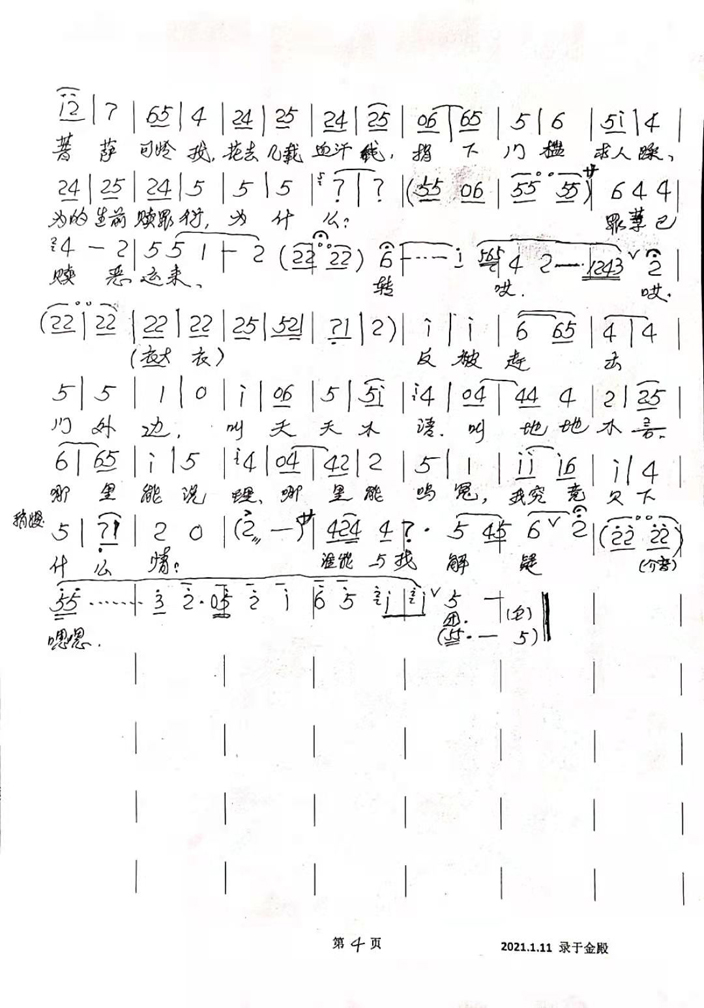 i2 | 7 | 65 | 4 | 24 | 25 | 24 | 25 | 06 | 65 | 5 | 6 | 5i | 4 |
菩 萨 可怜 我, 花去 几载 血汗 钱, 捐 下 门 槛 求人 踩、
24 | 25 | 24 | 5 | 5 | 5 | ? | ? | (55 06 | 55 55) サ 6 4 4 |
为的 生前 赎罪 衍, 为 什 么? 罪孽 已
4 - 2 | 5 5 1 - 2 (22 22) 6 ---- i 565 4 2 --- 1243 ∨ 2 |
赎 恶 运来、 转 哎. 哎.
(22 | 22 | 22 | 22 | 25 | 52 | ?1 | 2) | i | i | 6 | 65 | 4 | 4 |
(衣大 衣) 反 被 赶 出
5 | 5 | 1 | 0 | i | 06 | 5 | 5i | 4 | 04 | 44 4 | 2 | 25 |
门 外 边, 叫 天 天 不 语. 叫 地 地 不 言.
6 | 65 | i | 5 | 4 | 04 | 42 | 2 | 5 | 1 | ii | i6 | i | 4 |
哪 里 能 说 理、 哪 里 能 鸣 冤, 我 究 竟 欠 下
稍慢 5 | ?1 | 2 0 | (2 -) サ | 424 4 ? · 5 45 6 ∨ 2 | (22 22)
什 么 情? 谁能 与我 解 疑
55 ········ 3 2·05 2 i | 6 5 i i ∨ 5 -
嗯嗯. 团.
(55·- 5)
第 4 页
2021.1.11 录于金殿